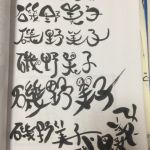 磯野美子
磯野美子
磯野美子
磯野美子
磯野美子